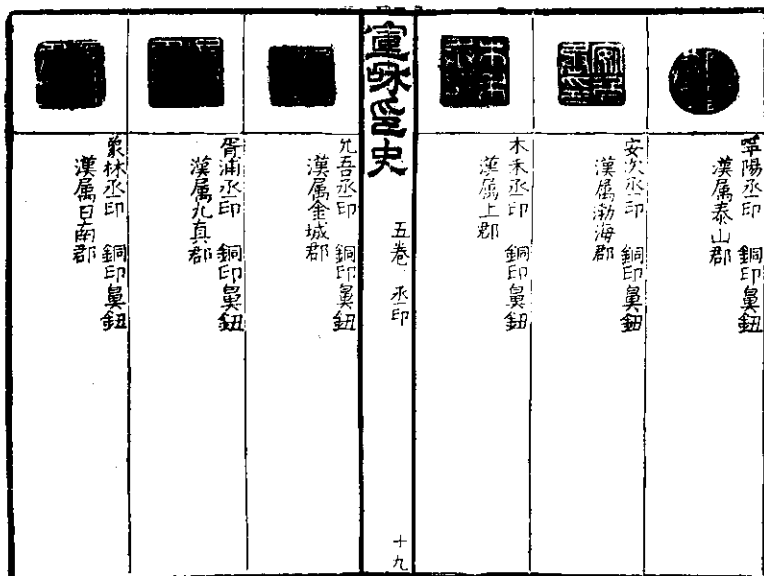 寧陽丞印　銅印鼻鈕
漢属泰山郡
安次丞印　銅印鼻鈕
漢属渤海郡
木禾丞印　銅印鼻鈕
漢属上郡
宣和印史　五卷　丞印　十九
允吾丞印　銅印鼻鈕
漢属金城郡
胥浦丞印　銅印鼻鈕
漢属九真郡
象林丞印　銅印鼻鈕
漢属日南郡